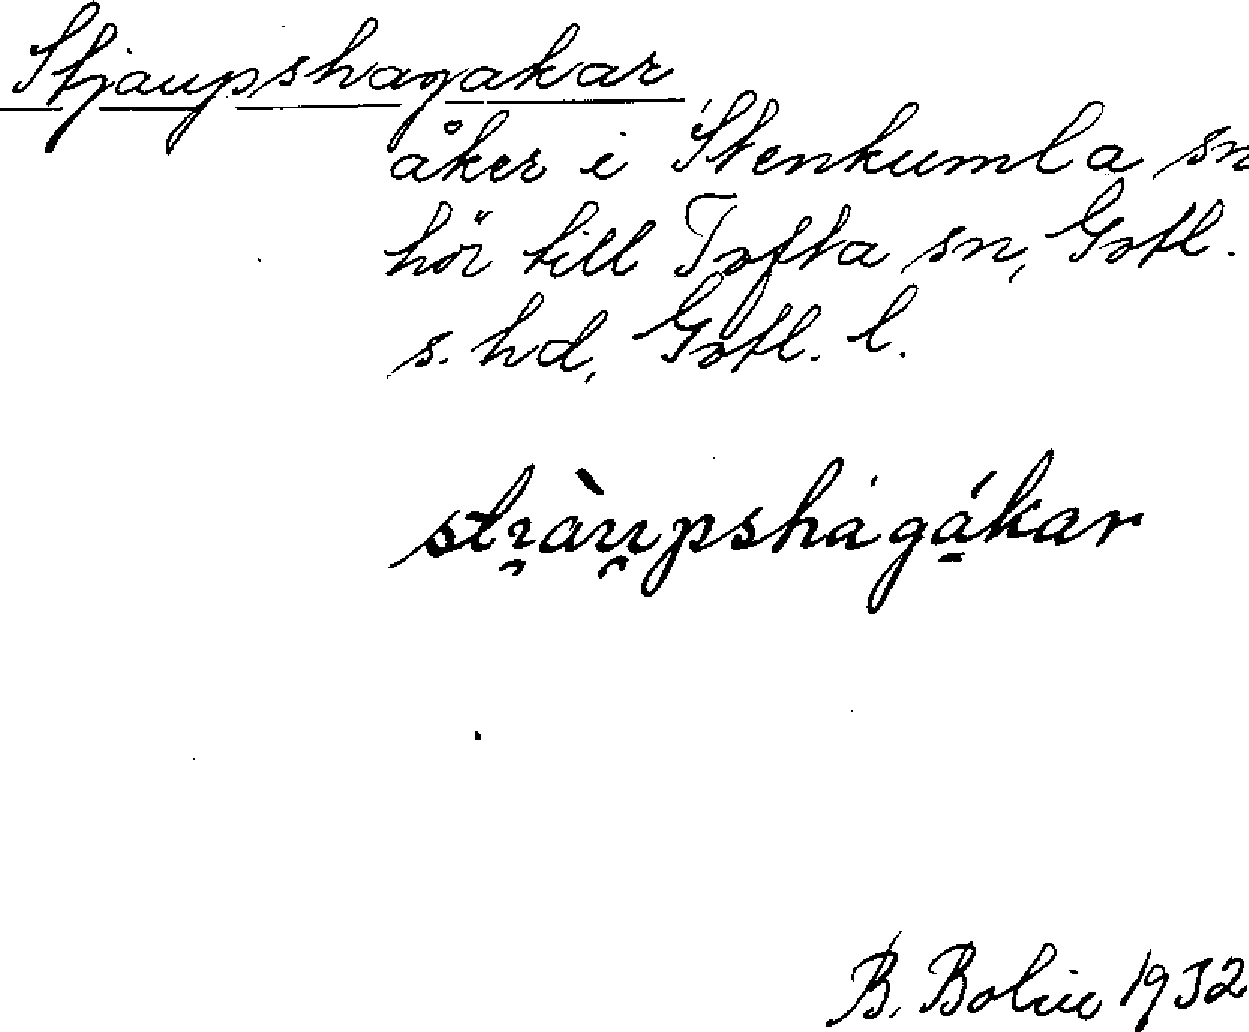 Stjaupshagakar
åker i Stenkumla sn
hör till Tofta sn, Gotl.
s. hd, Gotl. l.
sti̯àu̯pshágá̱kar
B. Bolin 1932